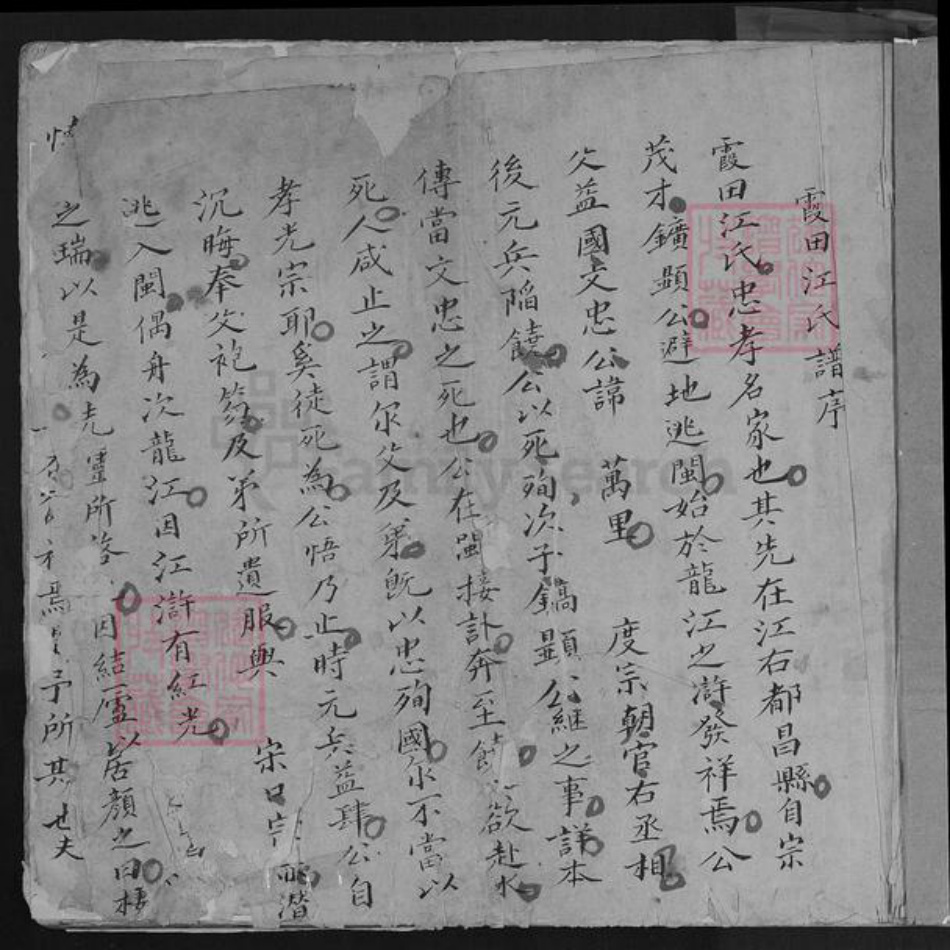 霞田江氏譜序
霞田江氏忠孝名家也其先在江右都昌縣自宗
茂才鑛顯公避地逃閩始於龍江之滸發祥焉公
父益國文忠公諱 萬里 度宗朝官右丞相
後元兵陷饒公以死殉次子鎬顯公繼之事詳本
傳當文忠之死也公在閩接訃奔至饒欲赴水
死人咸止之謂尔父及弟既以忠殉國尔不當以
孝光宗耶奚徒死為公悟乃止時元兵益肆公自
沉晦奉父袍笏及弟所遺服與 宋口宗 潛
逃入閩偶舟次龍江因江滸有紅光
之瑞以是為先靈所答因結廬以居顏之曰棲
焉 予所其也夫
FamilySearch